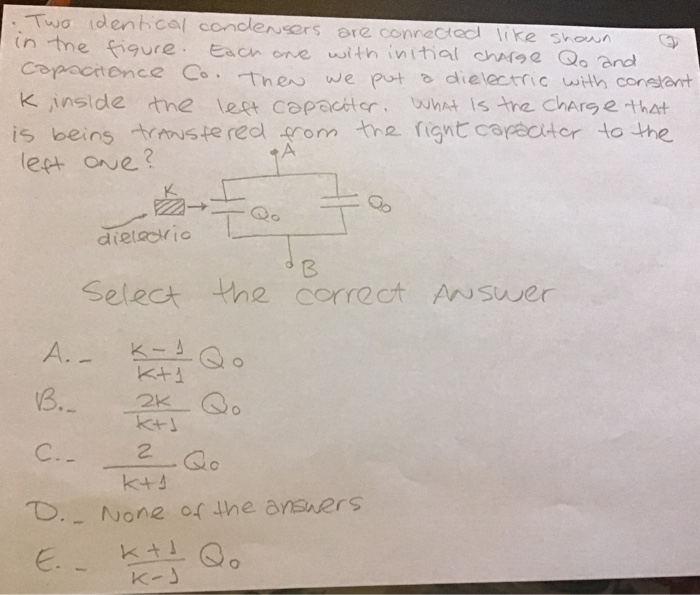 . Two identical condensers are connected like shown
in the figure. Each one with initial charge Q₀ and
capacitance C₀. Then we put a dielectric with constant
K, inside the left capacitor. What is the charge that
is being transfered from the right capacitor to the
left one?
A
K
Q₀
Q₀
dielectric
B
Select the correct Answer
A.- K-1/K+1 Q₀
B.- 2K/K+1 Q₀
C.- 2/K+1 Q₀
D.- None of the answers
E.- K+1/K-1 Q₀